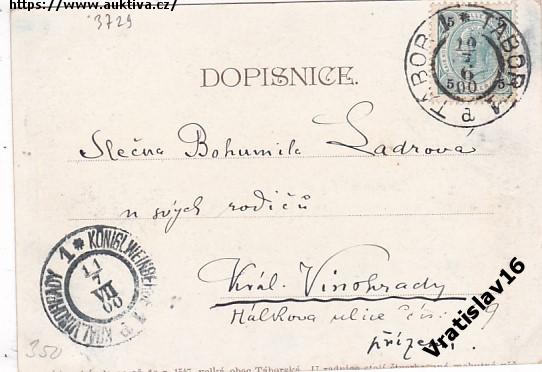 https://www.auktiva.cz/
3729
DOPISNICE.
TÁBOR 1 * TABOR
a
5 5
Slečna Bohumila Ladrová
u svých rodičů
Král. Vinohrady
Hálkova ulice čís. 9
přízemí.
1 * KÖNIGL. WEINBERGE
KRÁL. VINOHRADY
11
VII
00
350
Vratislav16
velká obec Táborská. U radnice stojí